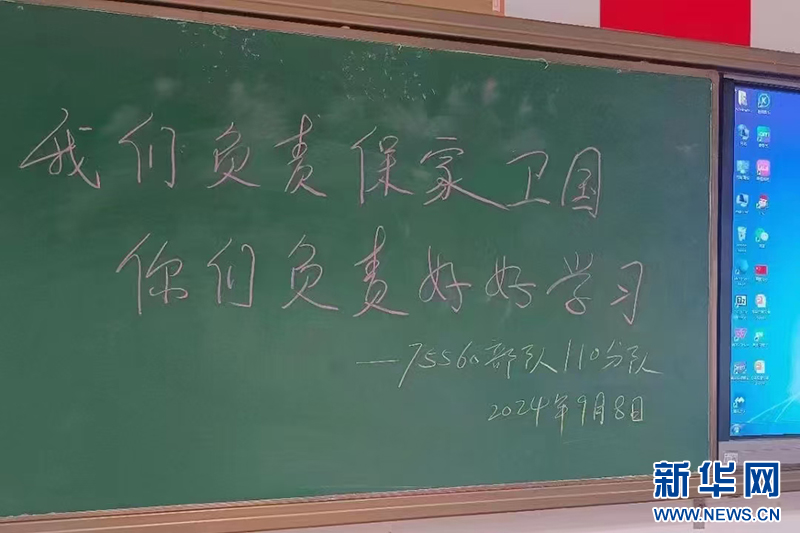 我们负责保家卫国
你们负责好好学习
—75560部队110分队
2024年9月8日
新华网
WWW.NEWS.CN